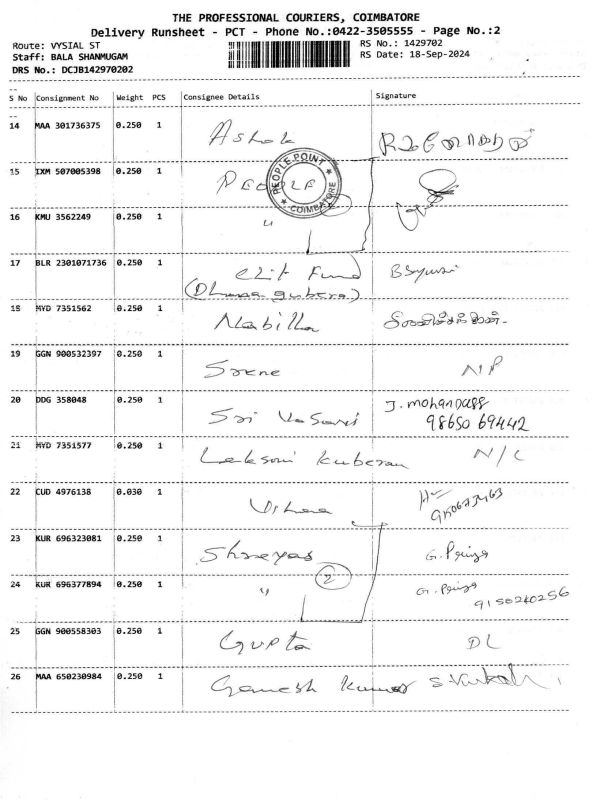 THE PROFESSIONAL COURIERS, COIMBATORE
Delivery Runsheet - PCT - Phone No.:0422-3505555 - Page No.:2
Route: VYSIAL ST
Staff: BALA SHANMUGAM
DRS No.: DCJB142970202
RS No.: 1429702
RS Date: 18-Sep-2024
S No Consignment No Weight PCS Consignee Details Signature
14 MAA 301736375 0.250 1 Ashok
15 IXM 507005398 0.250 1 People
PEOPLE POINT
COIMBATORE
16 KMU 3562249 0.250 1 "
17 BLR 2301071736 0.250 1 Chit Fund
18 MYD 7351562 0.250 1 Nabilla
19 GGN 900532397 0.250 1
20 DDG 358048 0.250 1 Sri J. mohanDass
98650 69442
21 MYD 7351577 0.250 1 Kuberan N/C
22 CUD 4976138 0.030 1
23 KUR 696323081 0.250 1 Shreyas G. Priya
2
24 KUR 696377894 0.250 1 " G. Priya
9150240256
25 GGN 900558303 0.250 1 Gupta DL
26 MAA 650230984 0.250 1 Ganesh Kumar